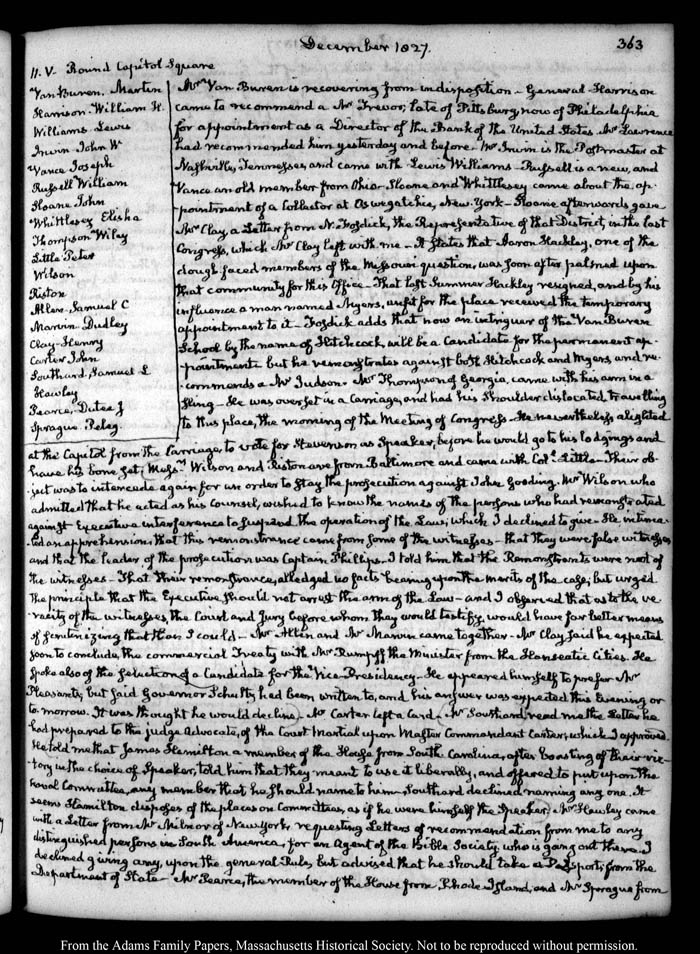 December 1827.
363
11. V. Round Capitol Square
Van Buren. Martin
Harrison. William H.
Williams. Lewis
Irwin John W
Vance Joseph
Russell William
Sloane John
Whittlesey Elisha
Thompson Wiley
Little Peter
Wilson
Riston
Allen. Samuel C
Marvin. Dudley
Clay. Henry
Carter John
Southard. Samuel L
Hawley
Pearce, Dutee J
Sprague. Peleg.
Mr Van Buren is recovering from indisposition. General Harrison
came to recommend a Mr Trevor, late of Pittsburg now of Philadelphia
for appointment as a Director of the Bank of the United States. Mr Lawrence
had recommended him yesterday and before. Mr Irwin is the Postmaster at
Nashville, Tennessee, and came with Lewis Williams. Russell is a new, and
Vance an old member from Ohio. Sloane and Whittlesey came about the ap-
pointment of a Collector at Oswegatchie, New-York. Sloane afterwards gave
Mr Clay, a Letter from N. Fosdick, the Representative of that District, in the last
Congress, which Mr Clay left with me. It states that Aaron Hackley, one of the
dough faced members of the Missouri question, was soon after palmed upon
that community for this Office. That last Summer Hackley resigned, and by his
influence a man named Myers, unfit for the place received the temporary
appointment to it. Fosdick adds that now an intriguer of the Van Buren
School by the name of Hitchcock, will be a Candidate for the permanent ap-
pointment but he remonstrates against both Hitchcock and Myers, and re-
commends a Mr Judson. Mr Thompson of Georgia, came with his arm in a
Sling. He was overset in a Carriage, and had his Shoulder dislocated, travelling
to this place, the morning of the Meeting of Congress. He nevertheless alighted
at the Capitol from the Carriage, to vote for Stevenson as Speaker, before he would go to his lodgings and
have his bone set. Messrs Wilson and Riston are from Baltimore and came with Coll Little. Their ob-
ject was to intercede again for an order to stay the prosecution against John Gooding. Mr Wilson who
admitted that he acted as his Counsel, wished to know the names of the persons who had remonstrated
against Executive interference to suspend the operation of the Laws, which I declined to give. He intima-
ted an apprehension, that this remonstrance came from some of the witnesses. that they were false witnesses
and that the leader of the prosecution was Captain Phillips. I told him that the Remonstrants were not of
the witnesses. That their remonstrance, alledged no facts bearing upon the merits of the case, but urged
the principle that the Executive should not arrest the arm of the Law. and I observed that as to the ve-
racity of the witnesses, the Court and Jury before whom they would testify, would have far better means
of scrutinizing that than I could. Mr Allen and Mr Marvin came together. Mr Clay said he expected
soon to conclude, the commercial Treaty with Mr Rumpff the Minister from the Hanseatic Cities. He
spoke also of the selection of a Candidate for the Vice-Presidency. He appeared himself to prefer Mr
Pleasants, but said Governor Shultz had been written to, and his answer was expected this Evening or
to-morrow. It was thought he would decline. Mr Carter left a Card. Mr Southard, read me the Letter he
had prepared to the judge Advocate, of the Court Martial upon Master Commandant Carter, which I approved.
He told me that James Hamilton a member of the House from South Carolina, after boasting of their vic-
tory in the choice of Speaker, told him that they meant to use it liberally, and offered to put upon the
Naval Committee, any member that he should name to him. Southard declined naming any one. It
seems Hamilton disposes of the places on Committees, as if he were himself the Speaker. Mr Hawley came
with a Letter from Mr Milnor of New York, requesting Letters of recommendation from me to any
distinguished persons in South America, for an Agent of the Bible Society, who is going out there. I
declined giving any, upon the general Rule, but advised that he should take a Passport, from the
Department of State. Mr Pearce, the member of the House from Rhode-Island, and Mr Sprague from
From the Adams Family Papers, Massachusetts Historical Society. Not to be reproduced without permission.